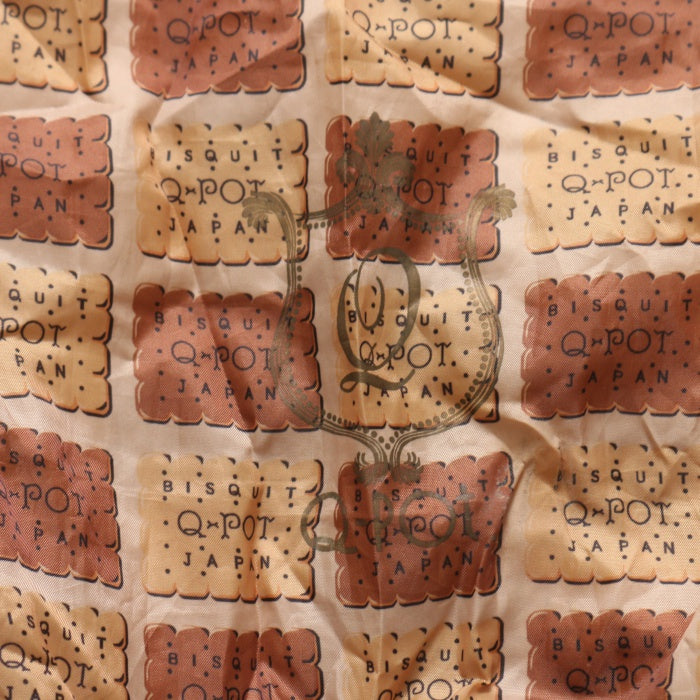 POT
APAN
Q-POT
JAPAN
Q-POT
JAPAN
Q-POT
JAPAN
SQUIT
POT
PAN
BISQUIT
Q-POT
JAPAN
BISQUIT
Q-POT
JAPAN
BISQUIT
Q-POT
JAPAN
QUIT
POT
PAN
BISQUIT
Q-POT
JAPAN
BISQUIT
Q-POT
JAPAN
BISQUIT
Q-POT
JAPAN
Q
Q-POT
SQUIT
Q-POT
APAN
BISQUIT
Q-POT
JAPAN
BISQUIT
Q-POT
JAPAN
BISQUIT
Q-POT
JAPAN
SQUIT
Q-POT
JAPAN
BISQUIT
Q-POT
BISQUIT
Q-POT
BISQUIT
Q-POT